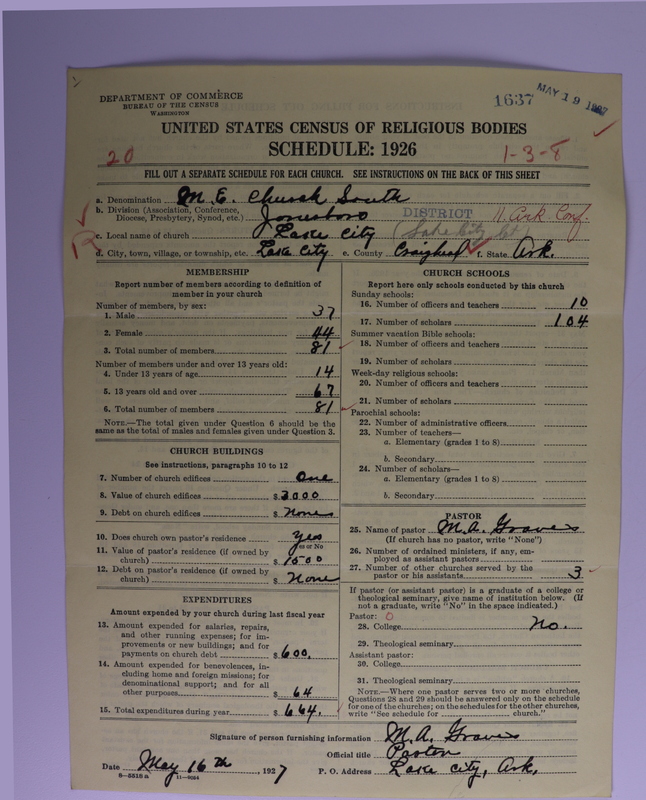 DEPARTMENT OF COMMERCE
BUREAU OF THE CENSUS
WASHINGTON
1637 MAY 19 1927
UNITED STATES CENSUS OF RELIGIOUS BODIES
SCHEDULE: 1926
20
1-3-8
FILL OUT A SEPARATE SCHEDULE FOR EACH CHURCH. SEE INSTRUCTIONS ON THE BACK OF THIS SHEET
a. Denomination M. E. Church South
b. Division (Association, Conference, Diocese, Presbytery, Synod, etc.) Jonesboro DISTRICT N. Ark Conf.
R
c. Local name of church Lake City (Lake City Ct.)
d. City, town, village, or township, etc. Lake City e. County Craighead f. State Ark.
MEMBERSHIP
Report number of members according to definition of member in your church
Number of members, by sex:
1. Male 37
2. Female 44
3. Total number of members 81
Number of members under and over 13 years old:
4. Under 13 years of age 14
5. 13 years old and over 67
6. Total number of members 81
NOTE.—The total given under Question 6 should be the same as the total of males and females given under Question 3.
CHURCH BUILDINGS
See instructions, paragraphs 10 to 12
7. Number of church edifices One
8. Value of church edifices $3000
9. Debt on church edifices $ None
10. Does church own pastor's residence Yes
Yes or No
11. Value of pastor's residence (if owned by church) $ 1500
12. Debt on pastor's residence (if owned by church) $ None
EXPENDITURES
Amount expended by your church during last fiscal year
13. Amount expended for salaries, repairs, and other running expenses; for improvements or new buildings; and for payments on church debt $ 600.
14. Amount expended for benevolences, including home and foreign missions; for denominational support; and for all other purposes $ 64
15. Total expenditures during year $ 664.
CHURCH SCHOOLS
Report here only schools conducted by this church
Sunday schools:
16. Number of officers and teachers 10
17. Number of scholars 104
Summer vacation Bible schools:
18. Number of officers and teachers
19. Number of scholars
Week-day religious schools:
20. Number of officers and teachers
21. Number of scholars
Parochial schools:
22. Number of administrative officers
23. Number of teachers—
a. Elementary (grades 1 to 8)
b. Secondary
24. Number of scholars—
a. Elementary (grades 1 to 8)
b. Secondary
PASTOR
25. Name of pastor M. A. Graves
(If church has no pastor, write "None")
26. Number of ordained ministers, if any, employed as assistant pastors
27. Number of other churches served by the pastor or his assistants 3
If pastor (or assistant pastor) is a graduate of a college or theological seminary, give name of institution below. (If not a graduate, write "No" in the space indicated.)
Pastor: 0
28. College No.
29. Theological seminary
Assistant pastor:
30. College
31. Theological seminary
NOTE.—Where one pastor serves two or more churches, Questions 28 and 29 should be answered only on the schedule for one of the churches; on the schedules for the other churches, write "See schedule for church."
Signature of person furnishing information M. A. Graves
Official title Pastor
Date May 16th, 1927 P. O. Address Lake City, Ark.
8-5318 a 11-9024